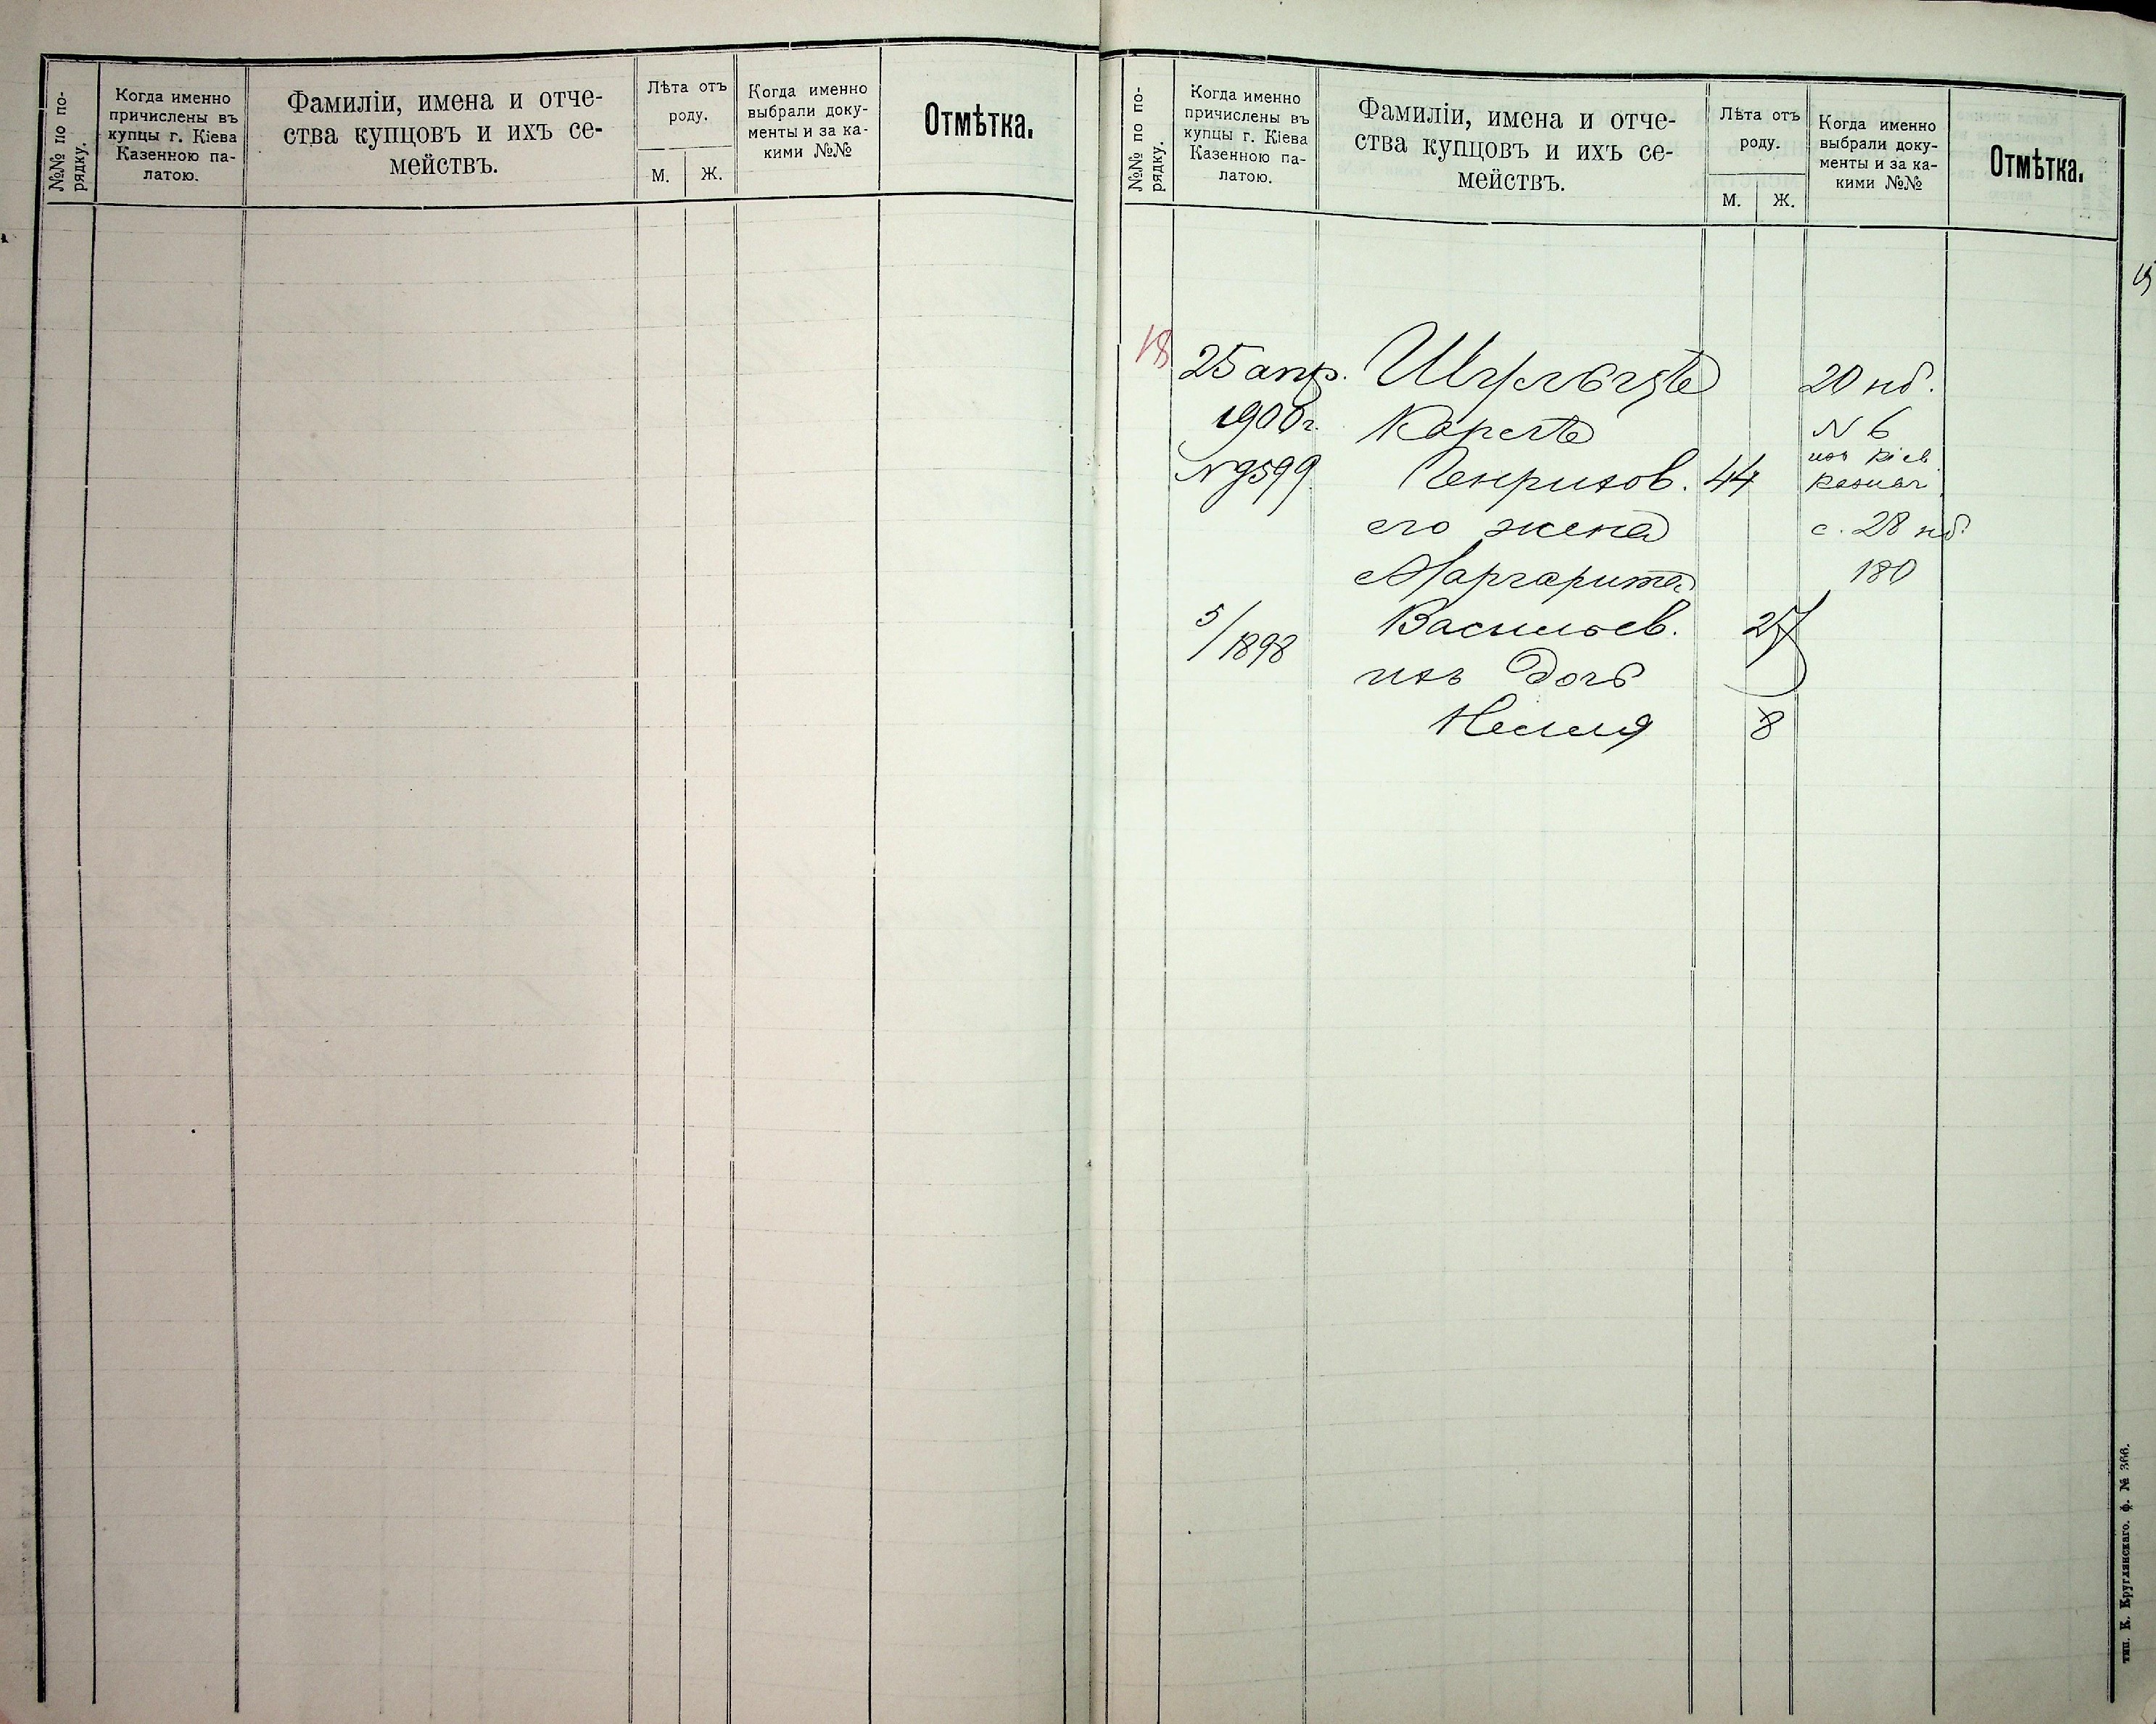 №№ по по-
рядку.
Когда именно
причислены въ
купцы г. Кіева
Казенною па-
латою.
Фамиліи, имена и отче-
ства купцовъ и ихъ се-
мействъ.
Лѣта отъ
роду.
М.
Ж.
Когда именно
выбрали доку-
менты и за ка-
кими №№
Отмѣтка.
№№ по по-
рядку.
Когда именно
причислены въ
купцы г. Кіева
Казенною па-
латою.
Фамиліи, имена и отче-
ства купцовъ и ихъ се-
мействъ.
Лѣта отъ
роду.
М.
Ж.
Когда именно
выбрали доку-
менты и за ка-
кими №№
Отмѣтка.
18
25 апр. Шульцъ 20 нб.
1900 г. Карлъ N 6
N 9599 Генрихов. 44 изъ Кіев
казнач
его жена с. 28 нб.
Маргарита 180
5/1898 Васильев. 27
ихъ дочь
Нелля 8
тип. К. Круглянскаго. ф. № 366.